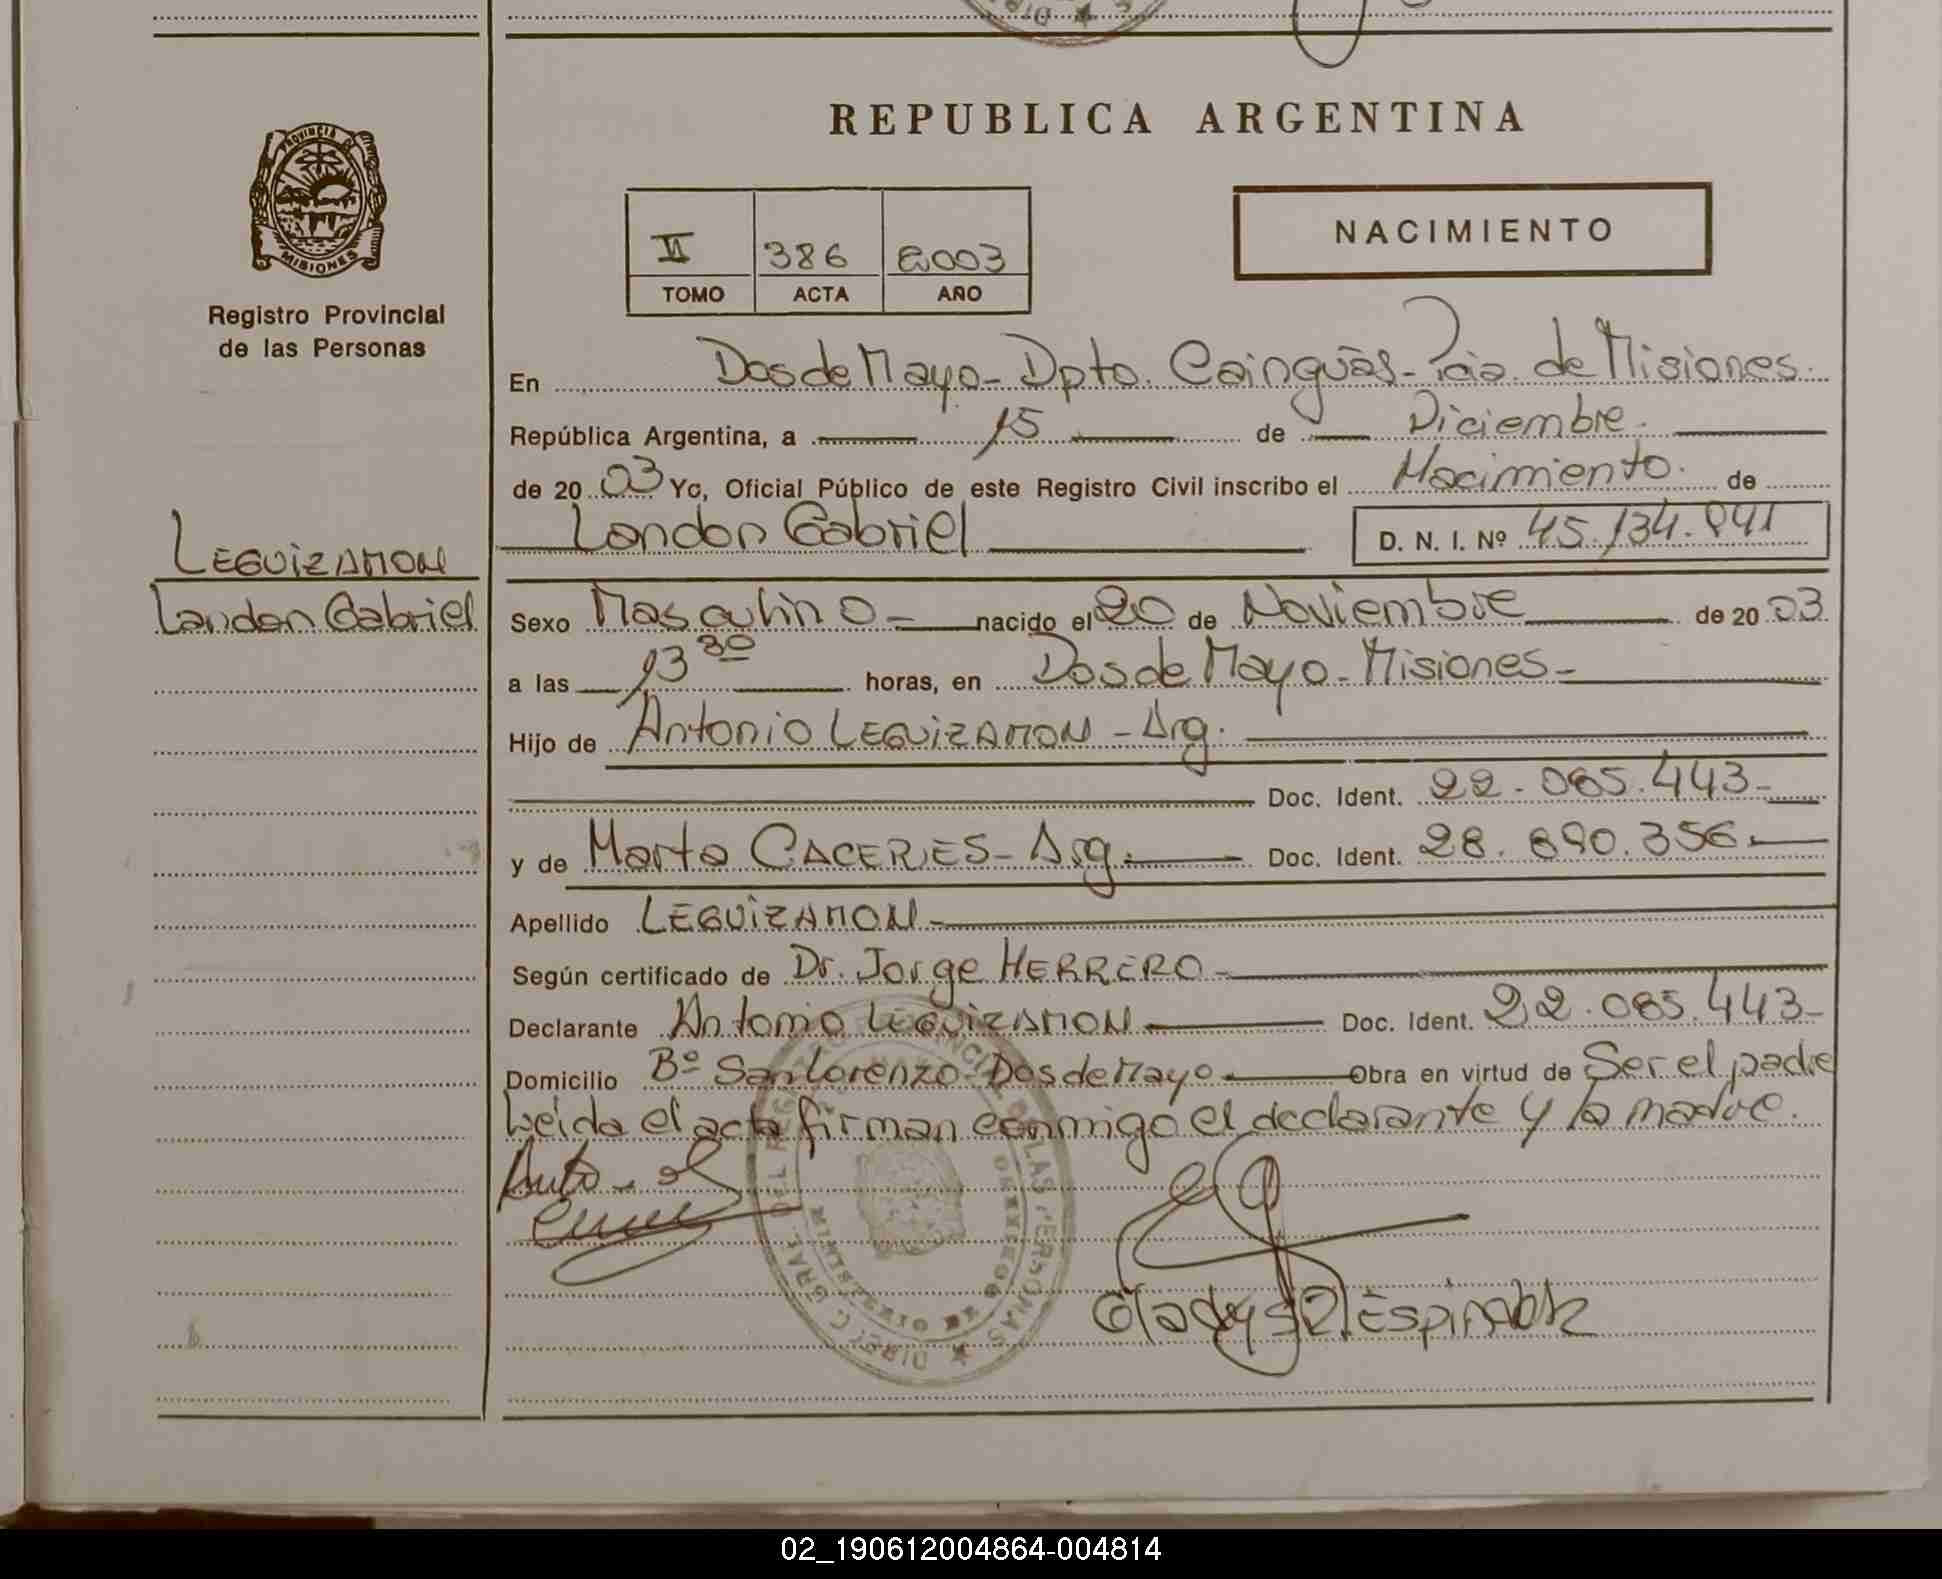 REPUBLICA ARGENTINA
PROVINCIA DE
MISIONES
Registro Provincial
de las Personas
II 386 2003
TOMO ACTA AÑO
NACIMIENTO
LEGUIZAMON
Landon Gabriel
En Dos de Mayo - Dpto. Cainguás - Pcia. de Misiones.
República Argentina, a 15 de Diciembre.
de 20 03 Yo, Oficial Público de este Registro Civil inscribo el Nacimiento. de
Landon Gabriel D. N. I. Nº 45.134.841
Sexo Masculino - nacido el 20 de Noviembre de 20 03
a las 13 30 horas, en Dos de Mayo - Misiones -
Hijo de Antonio LEGUIZAMON - Arg.
Doc. Ident. 22.085.443 -
y de Marta CACERES - Arg. Doc. Ident. 28.690.356 -
Apellido LEGUIZAMON -
Según certificado de Dr. Jorge HERRERO -
Declarante Antonio LEGUIZAMON Doc. Ident. 22.085.443 -
Domicilio Bº San Lorenzo - Dos de Mayo - Obra en virtud de Ser el padre
Leída el acta firman conmigo el declarante y la madre.
02_190612004864-004814